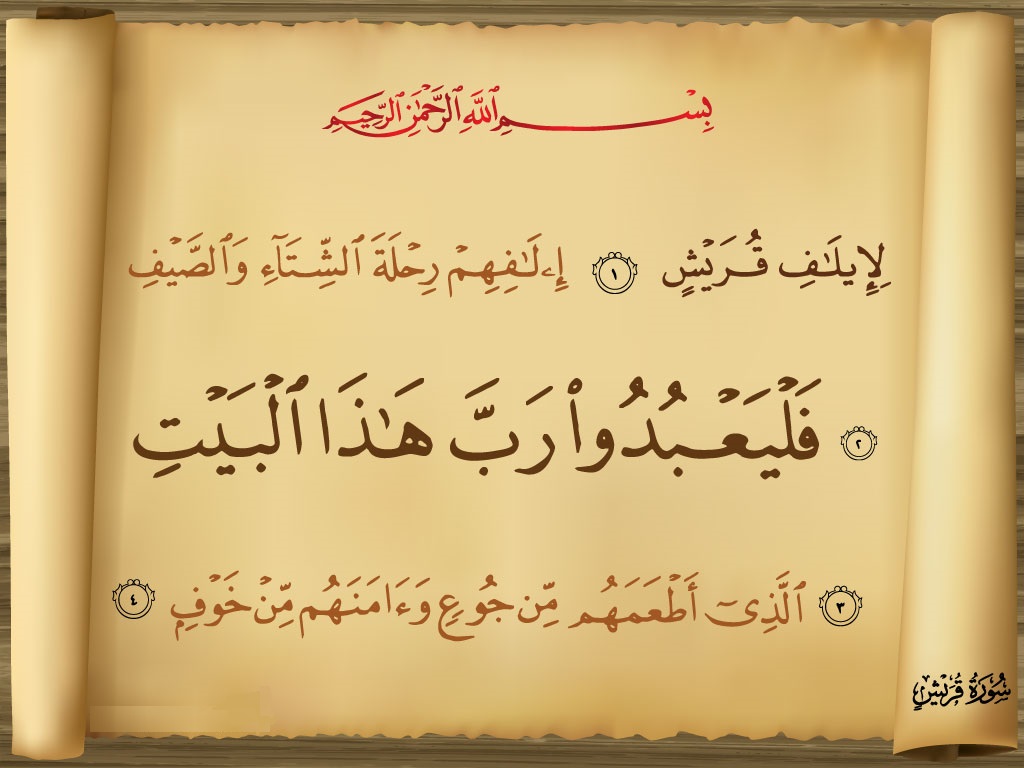 بِسْمِ ٱللَّهِ ٱلرَّحْمَٰنِ ٱلرَّحِيمِ
لِإِيلَٰفِ قُرَيْشٍ ١ إِۦلَٰفِهِمْ رِحْلَةَ ٱلشِّتَآءِ وَٱلصَّيْفِ
٢ فَلْيَعْبُدُوا۟ رَبَّ هَٰذَا ٱلْبَيْتِ
٣ ٱلَّذِىٓ أَطْعَمَهُم مِّن جُوعٍ وَءَامَنَهُم مِّنْ خَوْفٍ ٤
سُورَةُ قُرَيْشٍ